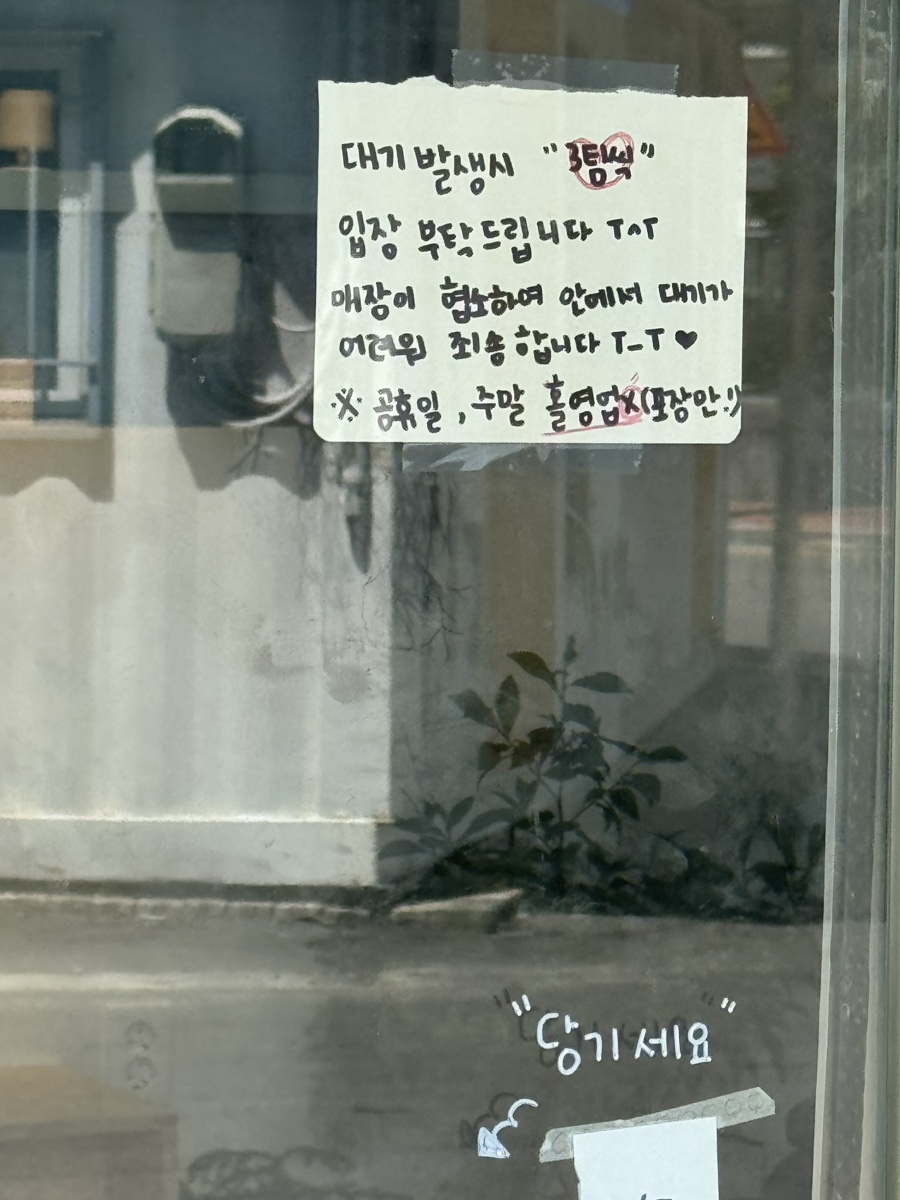 대기 발생시 "3팀씩"
입장 부탁드립니다 T^T
매장이 협소하여 안에서 대기가
어려워 죄송합니다 T_T ♥
※ 공휴일, 주말 홀영업X(포장만!)
"당기세요"